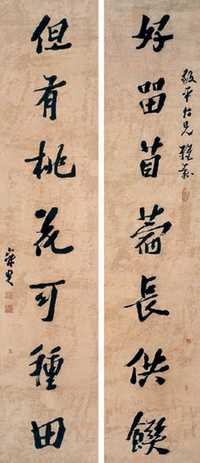 好留苜蓿長供饌
平仁兄
但有桃花可種田